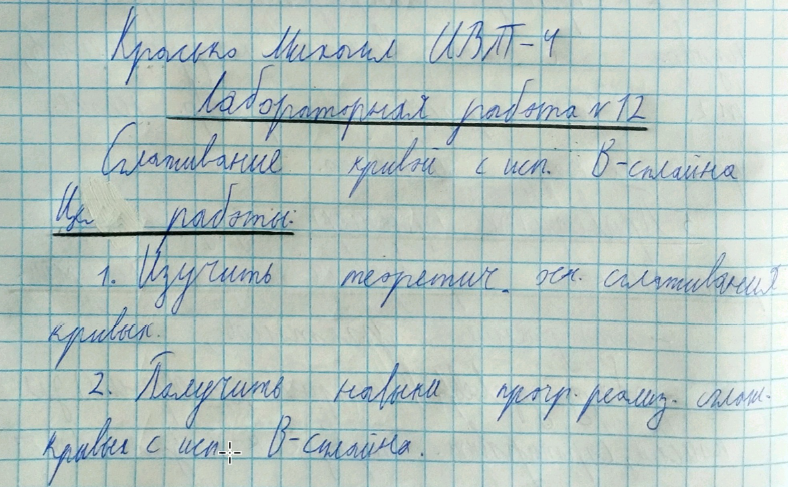 Михаил ИВТ-4
Лабораторная работа №12
Сглаживание кривой с исп. В-сплайна
работы:
1. Изучить теоретич. осн. сглаживания
кривых.
2. Получить навыки прогр. реализ. сглаж.
кривых с исп. В-сплайна.